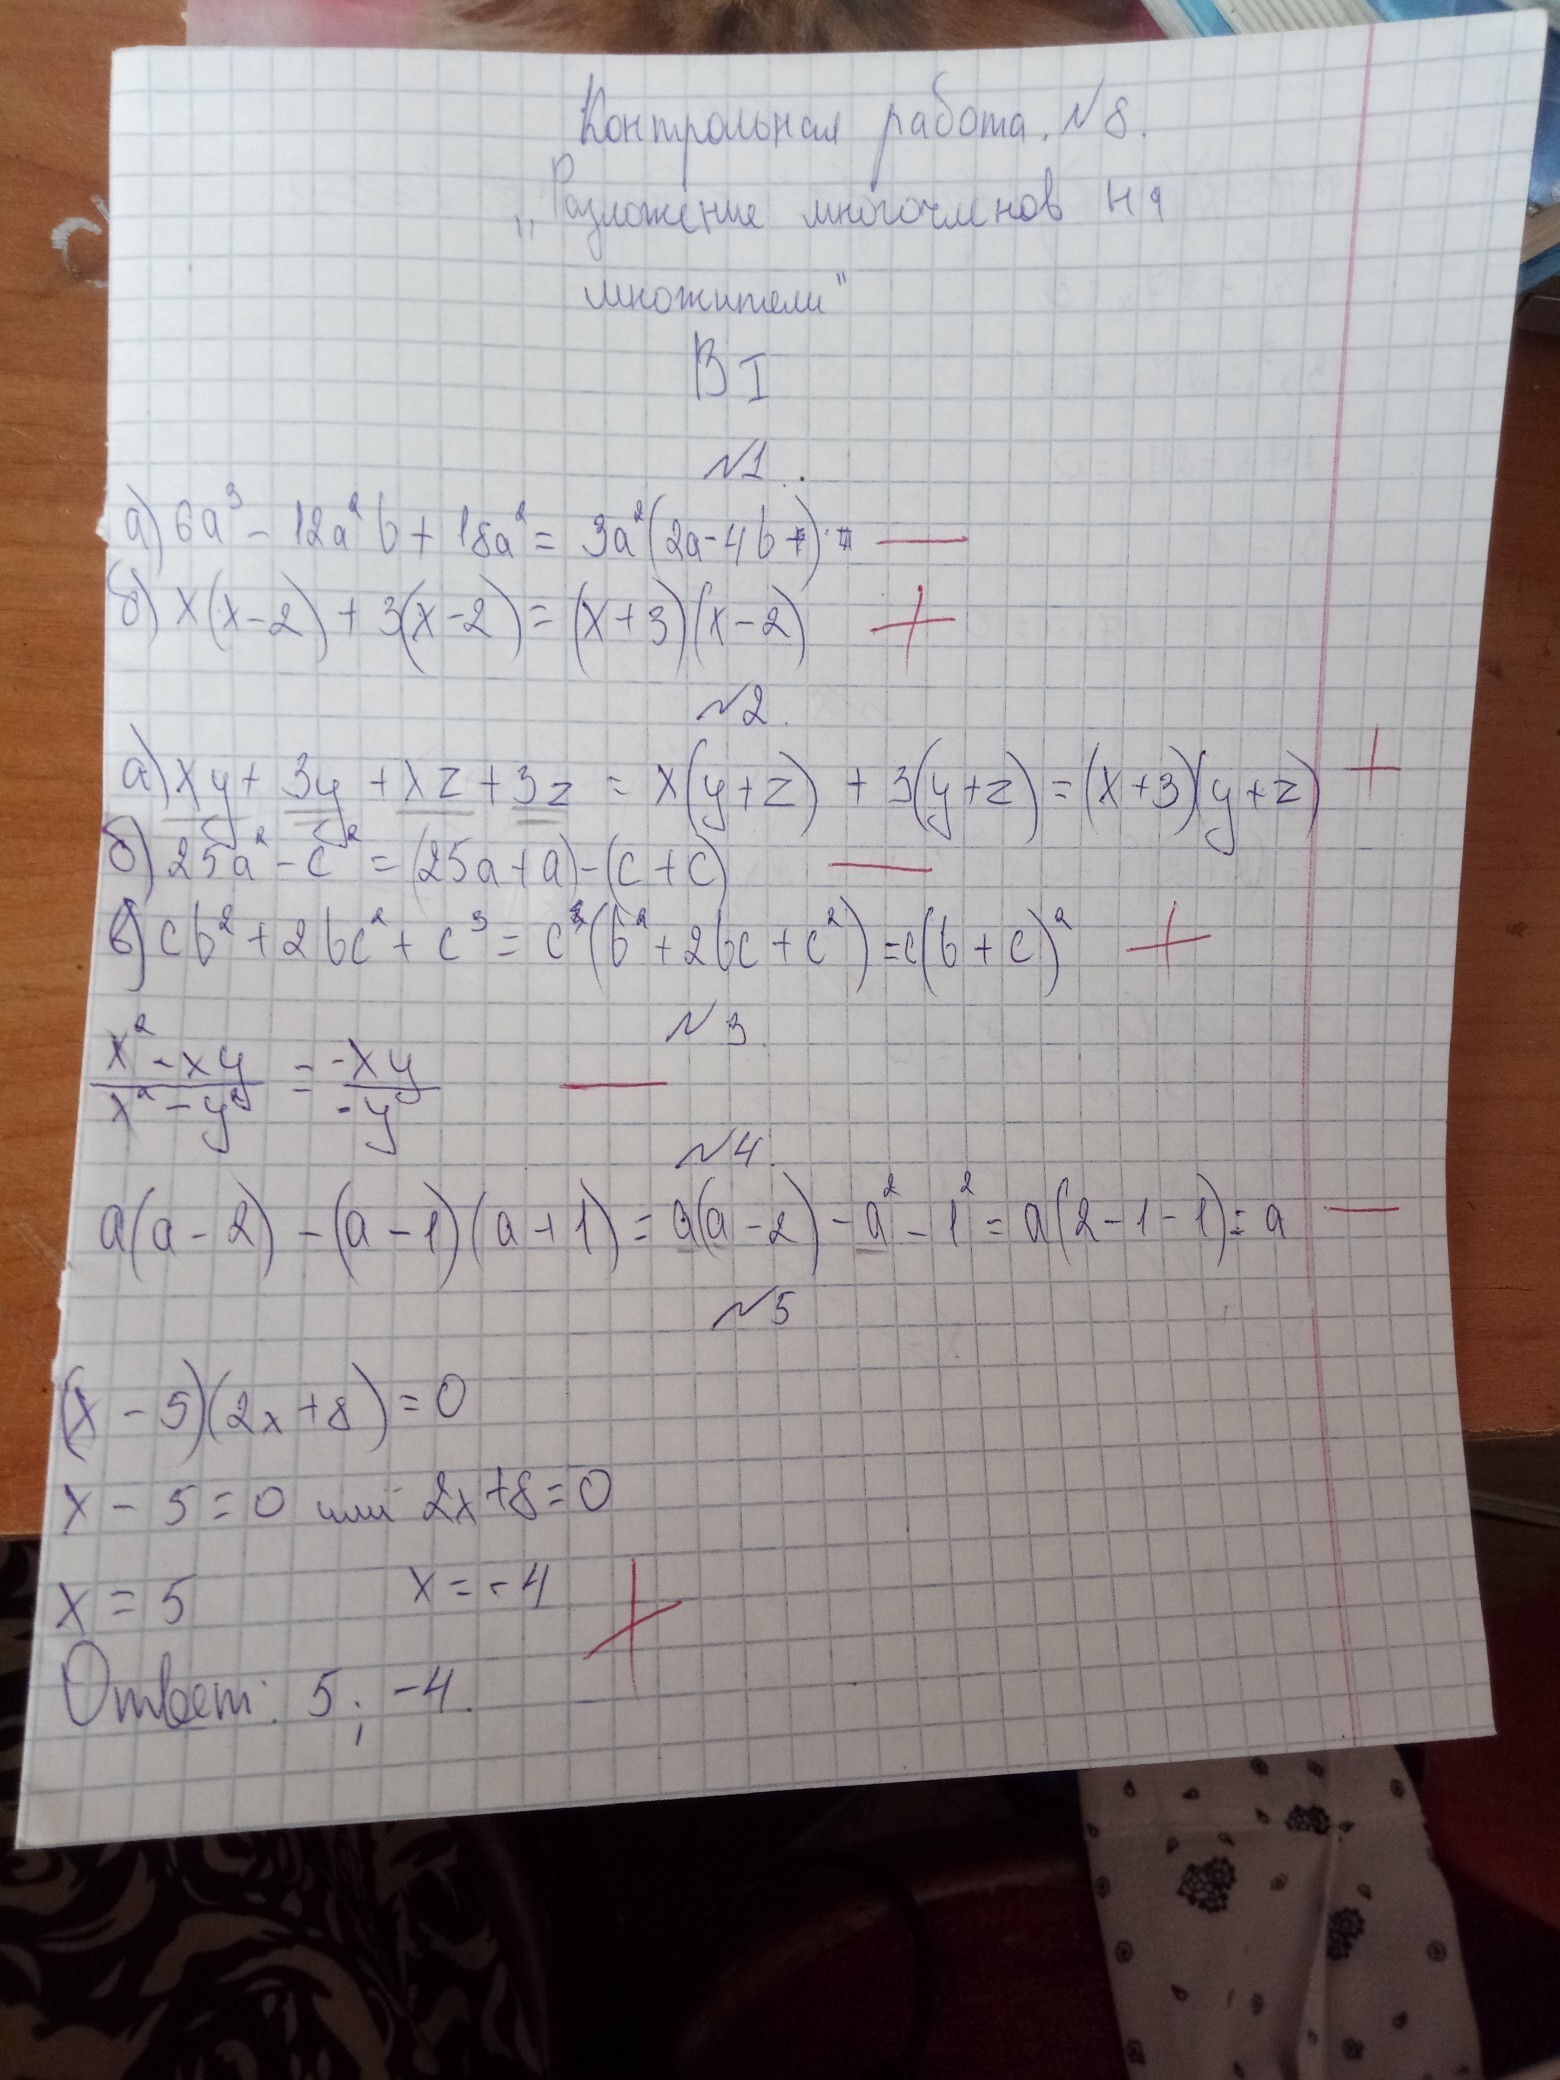 Контрольная работа. №8.
„Разложение многочленов на
множители"
В I
№1.
а) 6a³ - 12a²b + 18a² = 3a²(2a - 4b
б) x(x-2) + 3(x-2) = (x+3)(x-2)
№2.
а) xy + 3y + xz + 3z = x(y+z) + 3(y+z) = (x+3)(y+z)
б) 25a² - c² = (25a+a)-(c+c)
в) cb² + 2bc² + c³ = c(b² + 2bc + c²) = c(b+c)²
№3.
x² - xy / x² - y² = -xy / -y
№4.
a(a-2) - (a-1)(a+1) = a(a-2) - a² - 1² = a(2-1-1) = a
№5
(x-5)(2x+8) = 0
x - 5 = 0 или 2x+8=0
x = 5 x = -4
Ответ: 5; -4.